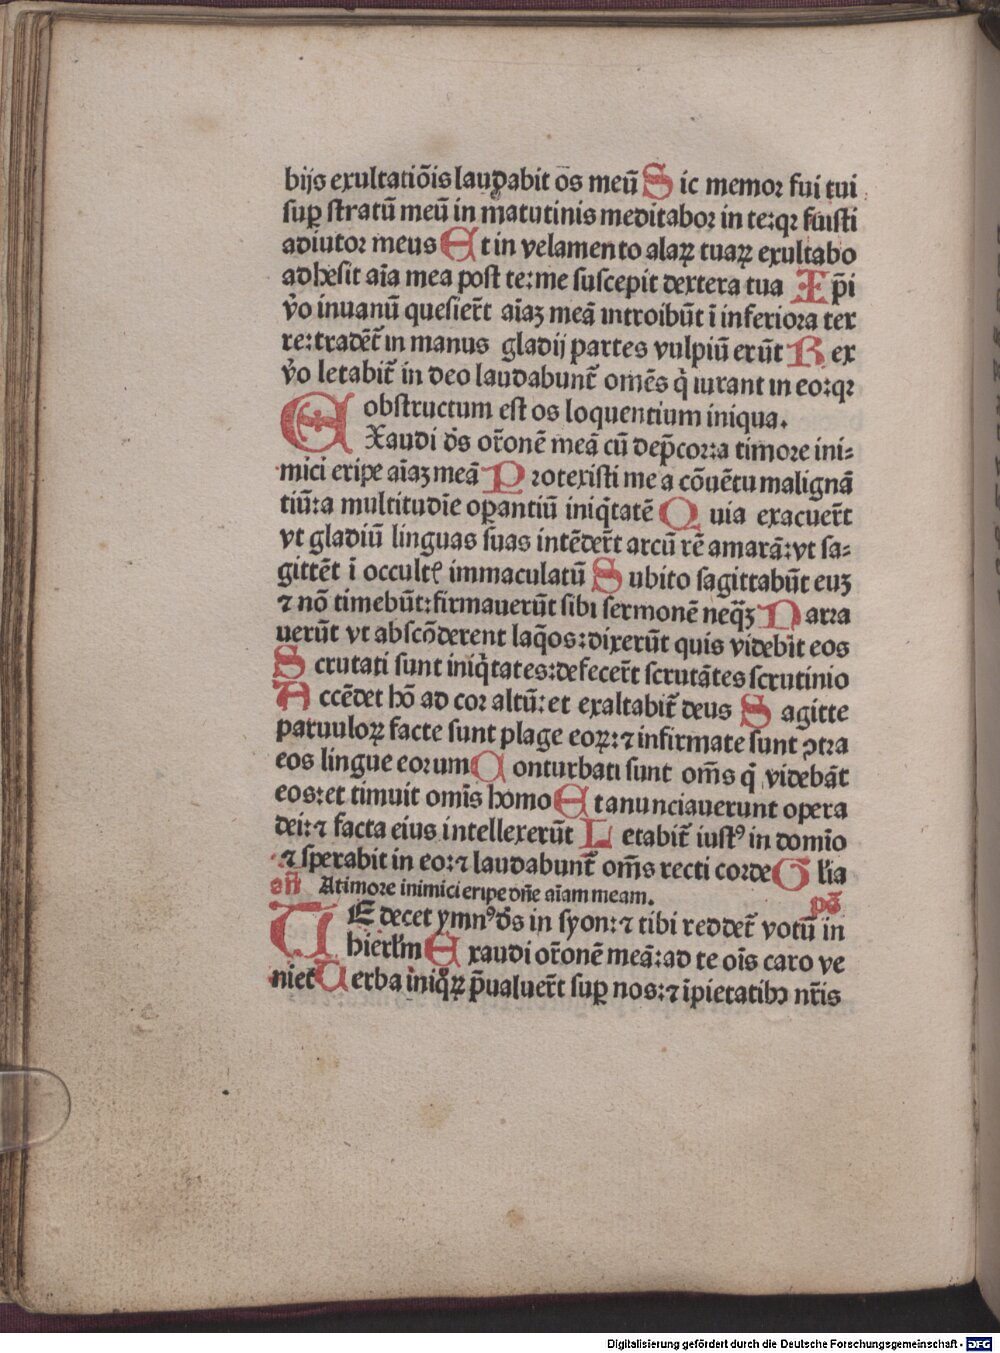 bijs exultatiōis laudabit ōs meū Sic memor fui tui
suꝑ stratū meū in matutinis meditabor in te:qꝛ fuisti
adiutor meus Et in velamento alaꝝ tuaꝝ exultabo
adhesit aīa mea post te:me suscepit dextera tua Ip̄i
v̊o inuanū quesier̄t aīaꝫ meā introibūt ī inferiora ter
re:tradēt̄ in manus gladij partes vulpiū erūt Rex
v̊o letabit̄ in deo laudabunt̄ omēs q̇ iurant in eo:qꝛ
obstructum est os loquentium iniqua.
EXaudi ds̄ or̄onē meā cū dep̄cor:a timore ini⸗
mici eripe aīaꝫ meā Protexisti me a cōuētu malignā
tiū:a multitudīe oꝑantiū iniq̇tatē Quia exacuer̄t
vt gladiū linguas suas intēder̄t arcū rē amarā:vt sa⸗
gittēt ī occultꝭ immaculatū Subito sagittabūt euꝫ
⁊ nō timebūt:firmauerūt sibi sermonē neq̄ꝫ Narra
uerūt vt abscōderent laq̄os:dixerūt quis videbit eos
Scrutati sunt iniq̇tates:defecer̄t scrutātes scrutinio
Accēdet hō ad cor altū:et exaltabit̄ deus Sagitte
paruuloꝝ facte sunt plage eoꝝ:⁊ infirmate sunt ꝯtra
eos lingue eorum Conturbati sunt om̄s q̇ videbāt
eos:et timuit omīs homo Et anunciauerunt opera
dei:⁊ facta eius intellexerūt Letabit̄ iustꝰ in domīo
⁊ sperabit in eo:⁊ laudabunt̄ om̄s recti corde Gl̄ia
an̄ Atimore inimici eripe dn̄e aīam meam. ps̄
TE decet ymnꝰ ds̄ in syon:⁊ tibi reddet̄ votū in
hierl̄m Exaudi or̄onē meā:ad te oīs caro ve
niet Uerba iniq̊ꝝ p̄ualuer̄t suꝑ nos:⁊ īpietatibꝫ nr̄is
Digitalisierung gefördert durch die Deutsche Forschungsgemeinschaft - DFG